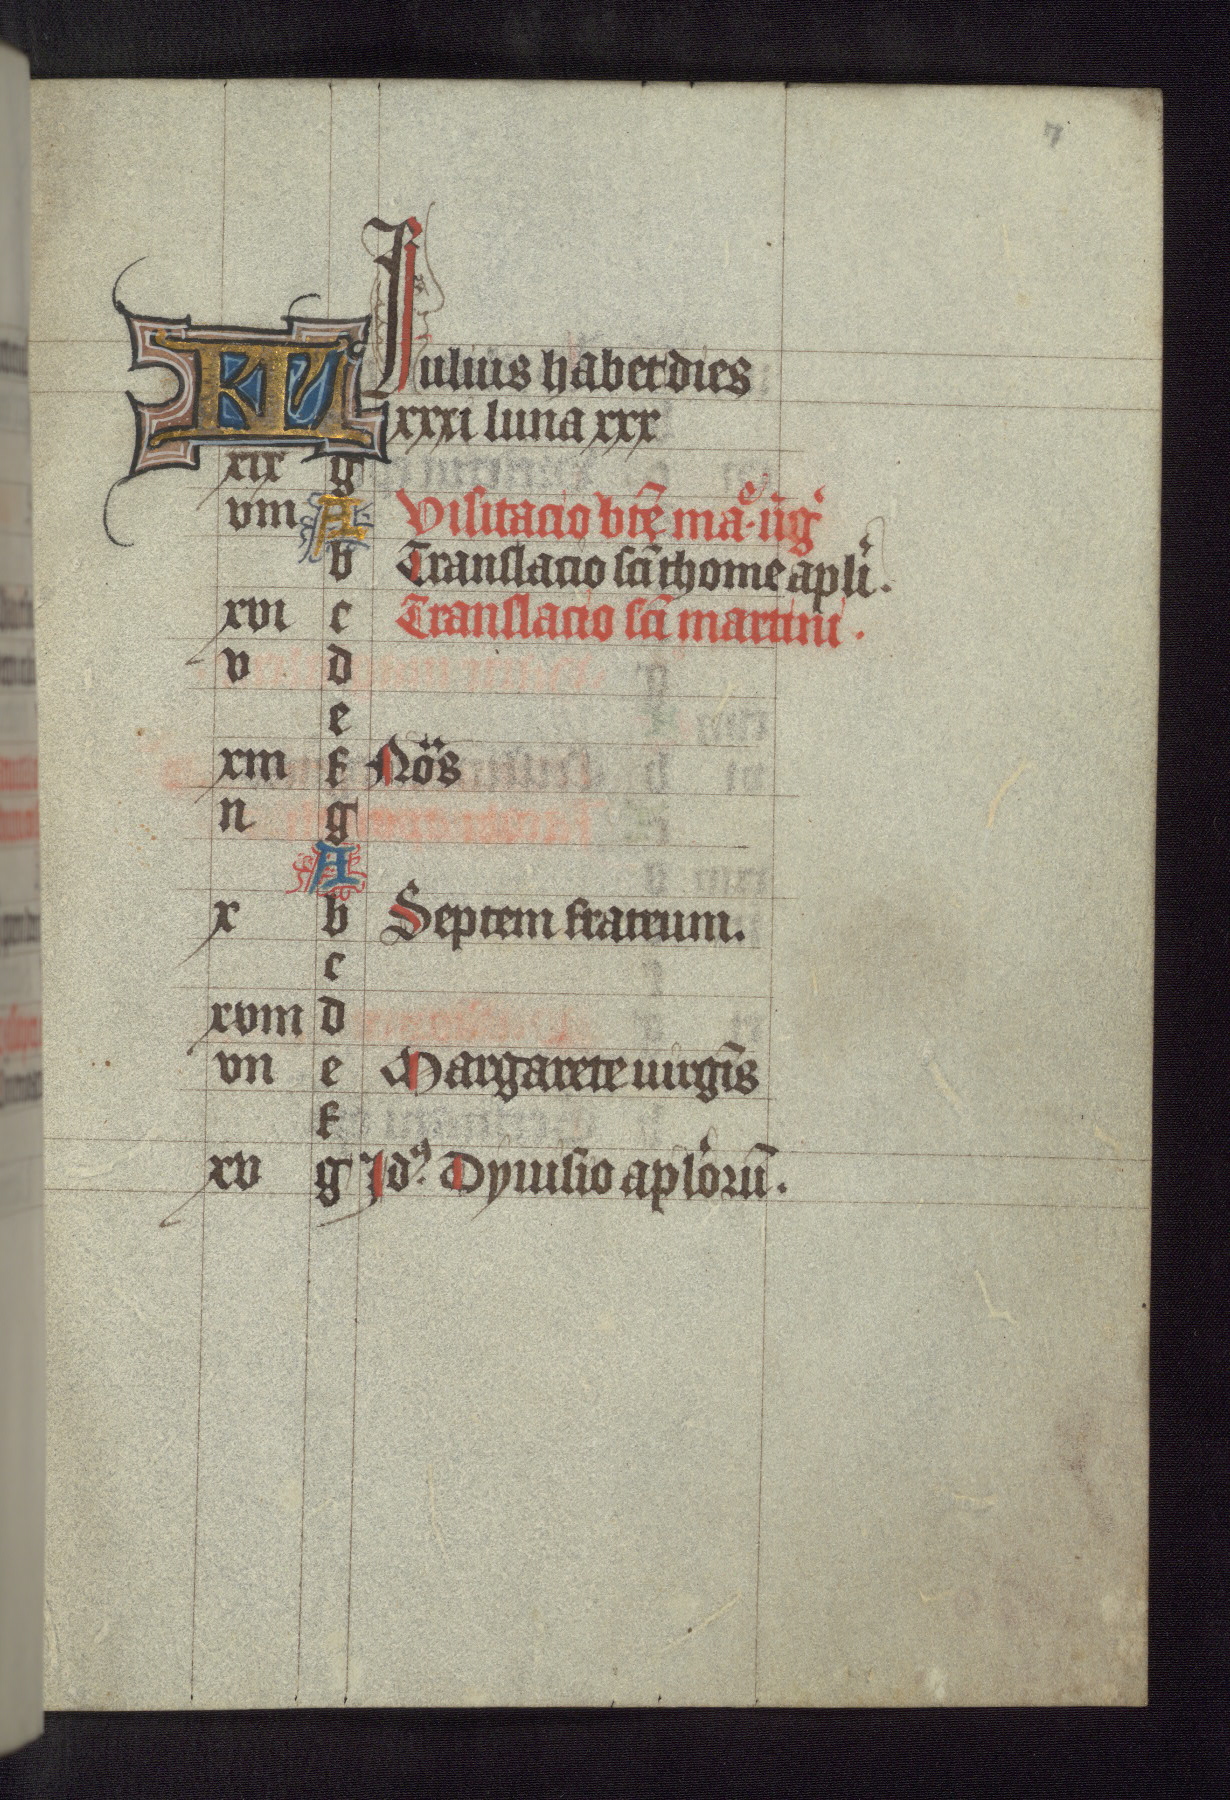 7
KL Julius habet dies
xxxi luna xxx
xix g
viii A Visitacio bt̄e ma̅ v̄ig̅
b Translacio sc̄i thome apl̄i.
xvi c Translacio sc̄i martini.
v d
e
xiii f No̅s
ii g
A
b x Septem fratrum.
c
xviii d
vii e Margarete uirgīs
f
xv g Jdꝰ Dyuisio apl̄orū.